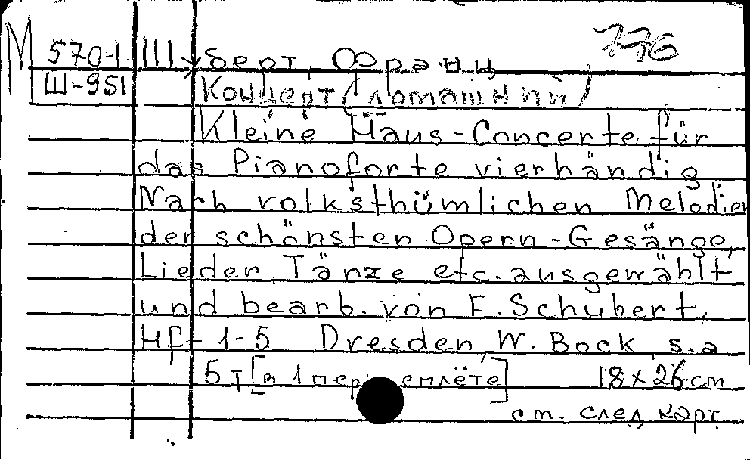 М 570-1 Шуберт, Франц 776
Ш-951 Концерт (домашний)
Kleine Haus-Concerte für
das Pianoforte vierhändig
Nach volksthümlichen Melodien
der schönsten Opern-Gesänge,
Lieder Tänze etc. ausgewählt
und bearb. von F. Schubert.
Hf- 1-5 Dresden, W. Bock, s.a
5 т [в 1 пер еплёте] 18 x 26 cm
см. след карт